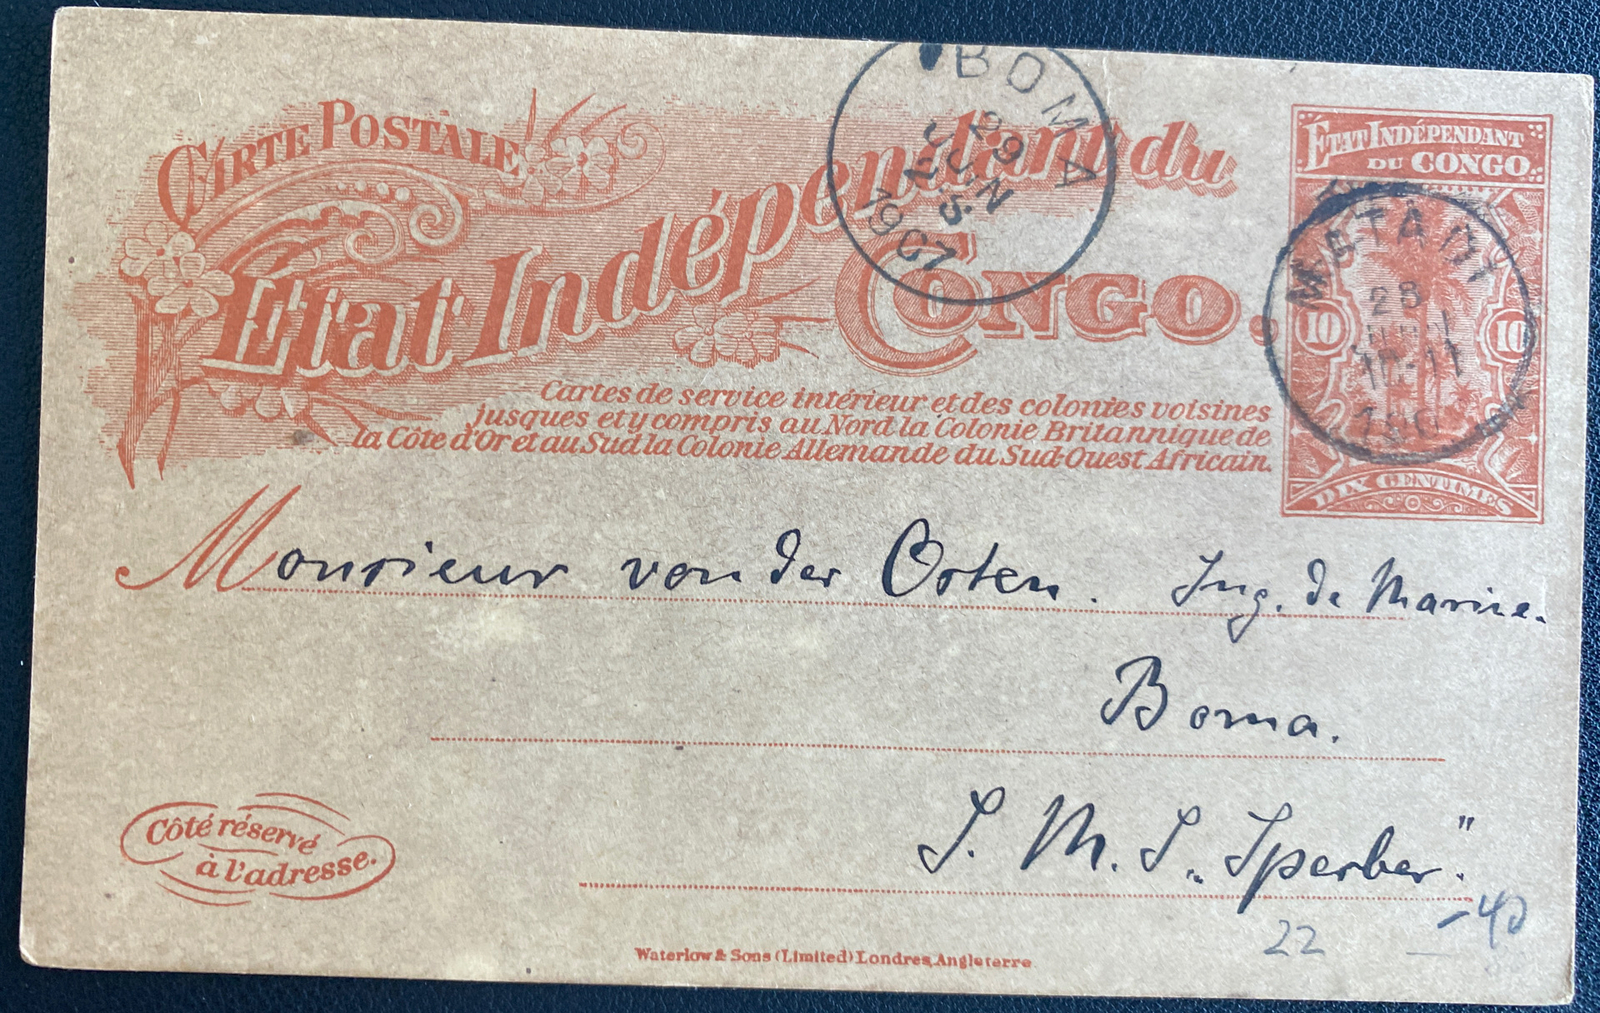 CARTE POSTALE
État Indépendant du
CONGO.
Cartes de service intérieur et des colonies voisines
jusques et y compris au Nord la Colonie Britannique de
la Côte d'Or et au Sud la Colonie Allemande du Sud-Ouest Africain.
ÉTAT INDÉPENDANT
DU CONGO.
10 10
DIX CENTIMES
BOMA
29
JUIN
7-S.
1907
MATADI
28
JUIN
10-11
190
Monsieur von der Osten. Ing. de Marine.
Boma.
S. M. S. „Sperber".
22 -40
Côté réservé
à l'adresse.
Waterlow & Sons (Limited) Londres, Angleterre.